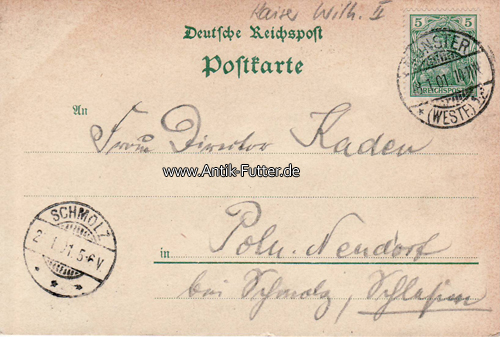 Kaiser Wilh. II
Deutsche Reichspost
Postkarte
5 5
REICHSPOST
MÜNSTER
1.01.
(WESTF.)
An
Frau Director Kaden
www.Antik-Futter.de
SCHMOLZ
in Poln. Neudorf
bei Schmolz, Schlesien